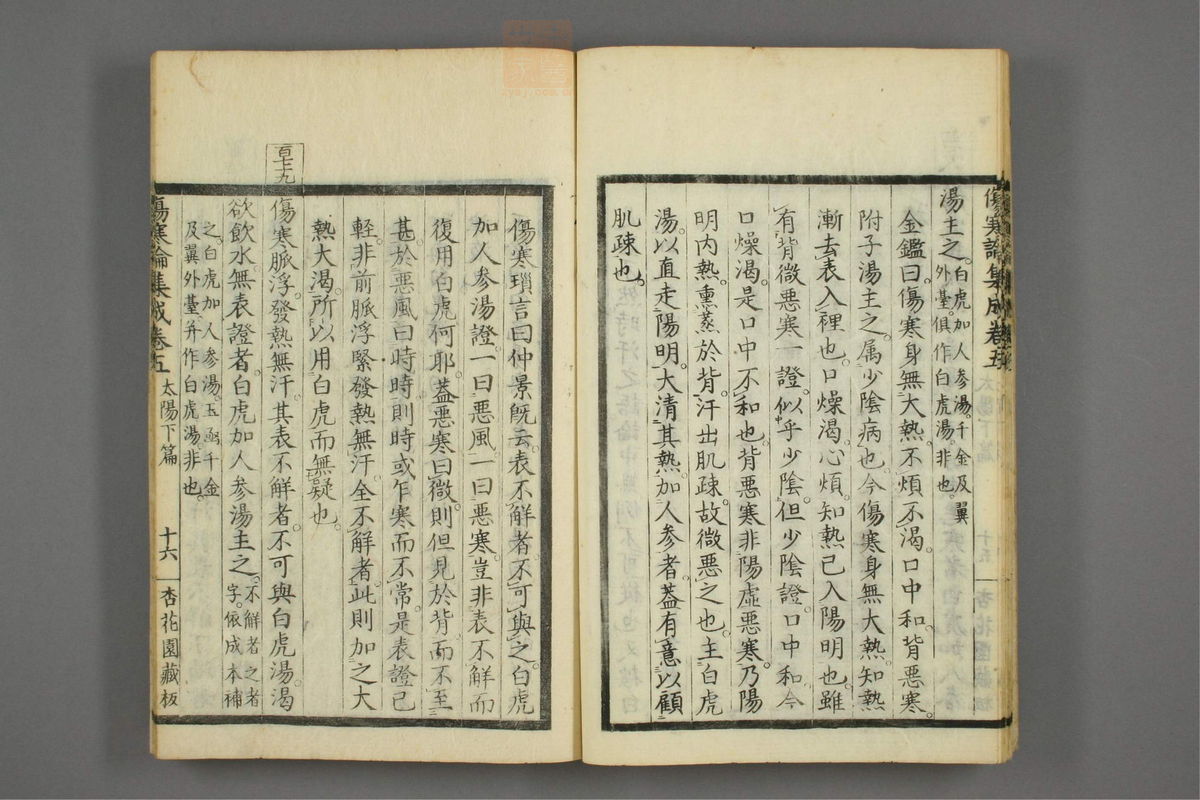 湯主之。白虎加人參湯。千金及翼
外臺。俱作白虎湯。非也。
金鑑曰。傷寒身無大熱。不煩不渴。口中和。背惡寒。
附子湯主之。属少陰病也。今傷寒身無大熱。知熱
漸去表入裡也。口燥渴。心煩。知熱已入陽明也。雖
有背微惡寒一證。似乎少陰。但少陰證。口中和。今
口燥渴。是口中不和也。背惡寒非陽虛惡寒。乃陽
明內熱。熏蒸於背。汗出肌疎。故微惡之也。主白虎
湯。以直走陽明。大清其熱。加人參者。蓋有意以顧
肌疎也。
傷寒論集成卷五
傷寒瑣言曰。仲景旣云。表不解者。不可與之。白虎
加人參湯證。一曰惡風。一曰惡寒。豈非表不解而
復用白虎何耶。蓋惡寒曰微。則但見於背。而不至
甚。於惡風曰時時。則時或乍寒而不常。是表證已
輕。非前脈浮緊發熱無汗。全不解者。此則加之大
熱大渴。所以用白虎而無疑也。
百七九
傷寒脈浮。發熱無汗。其表不解者。不可與白虎湯。渴
欲飲水。無表證者。白虎加人參湯主之。不解者之者
字。依成本補
之。白虎加人參湯。玉函千金
及翼外臺。并作白虎湯。非也。
傷寒論集成卷五 太陽下篇 十六 杏花園藏板